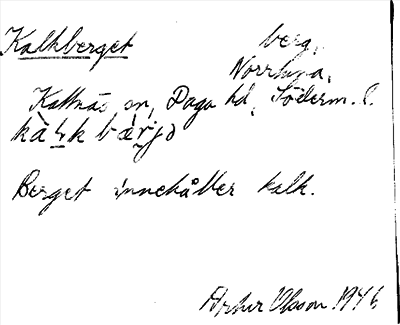 Kalkberget berg,
Norrtuna,
Kattnäs sn, Daga hd, Söderm. l.
Berget innehåller kalk.
Artur Olsson 1946